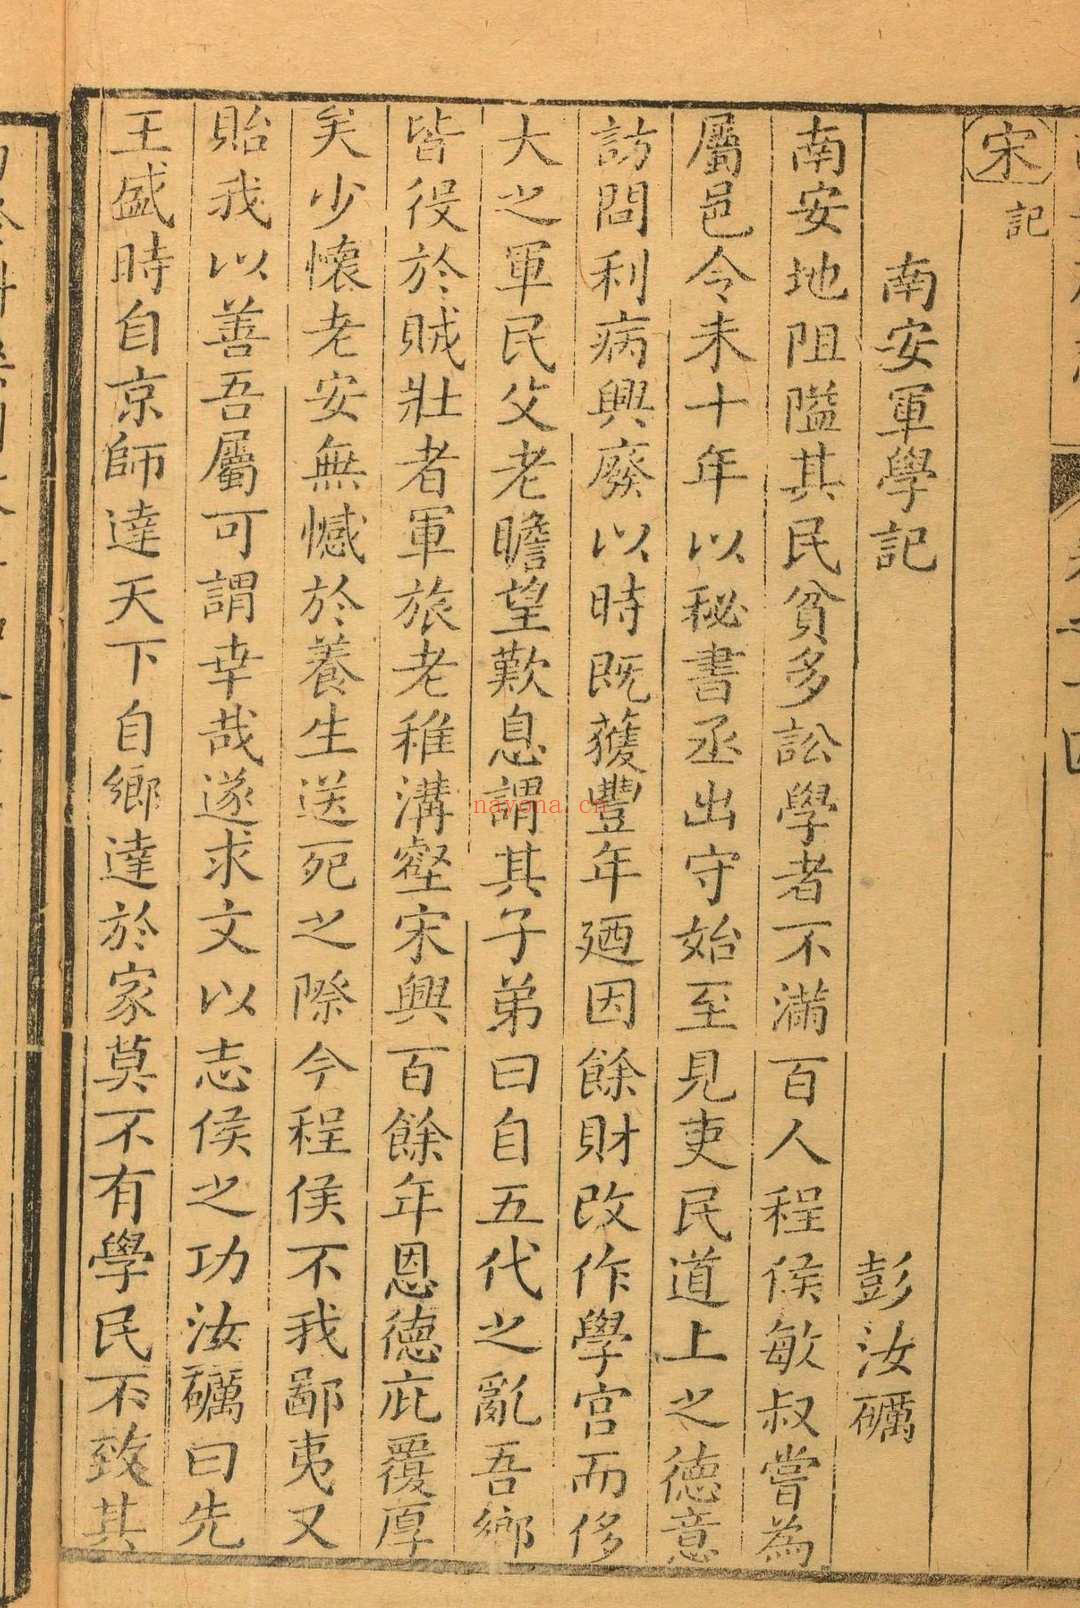 宋
記
南安軍學記
彭汝礪
南安地阻隘其民貧多訟學者不滿百人程侯敏叔嘗為
屬邑令未十年以秘書丞出守始至見吏民道上之德意
訪問利病興廢以時既獲豐年廼因餘財改作學宮而侈
大之軍民父老瞻望歎息謂其子弟曰自五代之亂吾鄉
皆役於賊壯者軍旅老稚溝壑宋興百餘年恩德庇覆厚
矣少懷老安無憾於養生送死之際今程侯不我鄙夷又
貽我以善吾屬可謂幸哉遂求文以志侯之功汝礪曰先
王盛時自京師達天下自鄉達於家莫不有學民不致其
nayona.cn